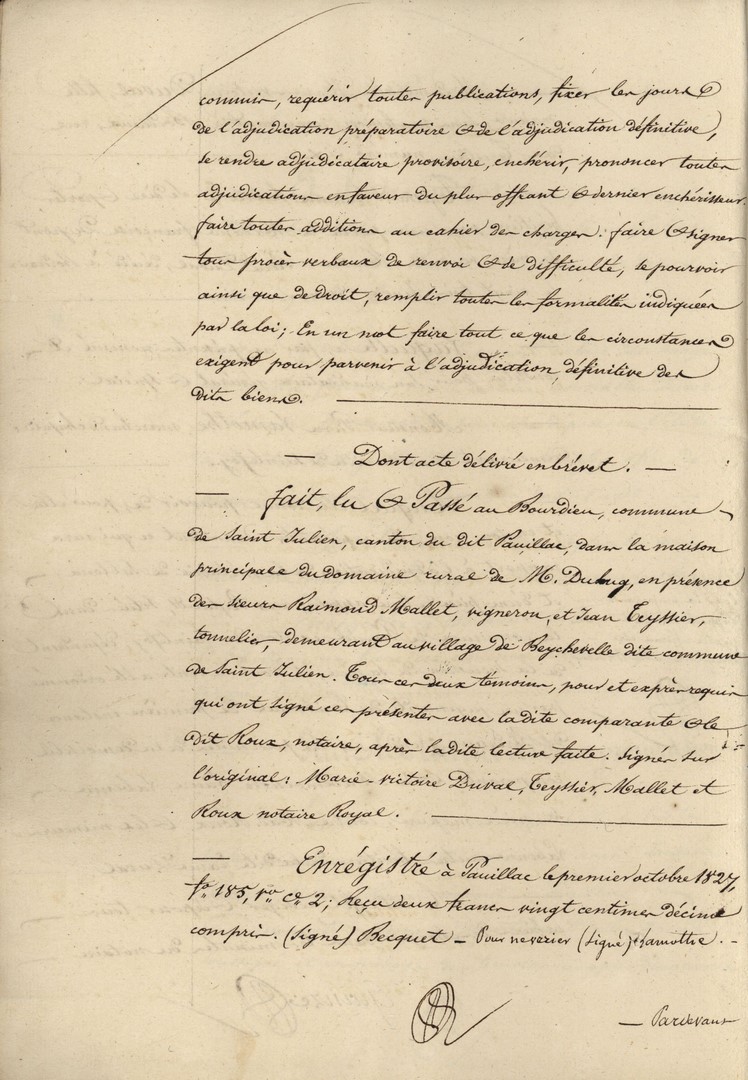 commis, requérir toutes publications, fixer les jours
de l'adjudication préparatoire & de l'adjudication définitive,
se rendre adjudicataire provisoire, enchérir, prononcer toutes
adjudications en faveur du plus offrant & dernier enchérisseur.
faire toutes additions au cahier des charges. faire & signer
tous procès verbaux de renvoi & de difficulté, se pourvoir
ainsi que de droit, remplir toutes les formalités indiquées
par la loi; En un mot faire tout ce que les circonstances
exigent pour parvenir à l'adjudication définitive des
dits biens.
— Dont acte délivré en brévet. —
— fait, lu & Passé au Bourdieu, commune
de Saint Julien, canton du dit Pauillac, dans la maison
principale du domaine rural de M. Duluq, en présence
des sieurs Raimond Mallet, vigneron, et Jean Teyssier,
tonnelier, demeurant au village de Beychevelle dite commune
de Saint Julien. Tous ces deux témoins, pour et exprès requis
qui ont signé ces présentes avec la dite comparante & le
dit Roux, notaire, après la dite lecture faite. Signés sur
l'original: Marie-victoire Duval, Teyssier, Mallet et
Roux notaire Royal.
— Enrégistré à Pauillac le premier octobre 1827,
fo. 185, vo. ce. 2; Reçu deux francs vingt centimes décime
compris. (Signé) Becquet — Pour (signé) Lamothe. —
— Pardevant